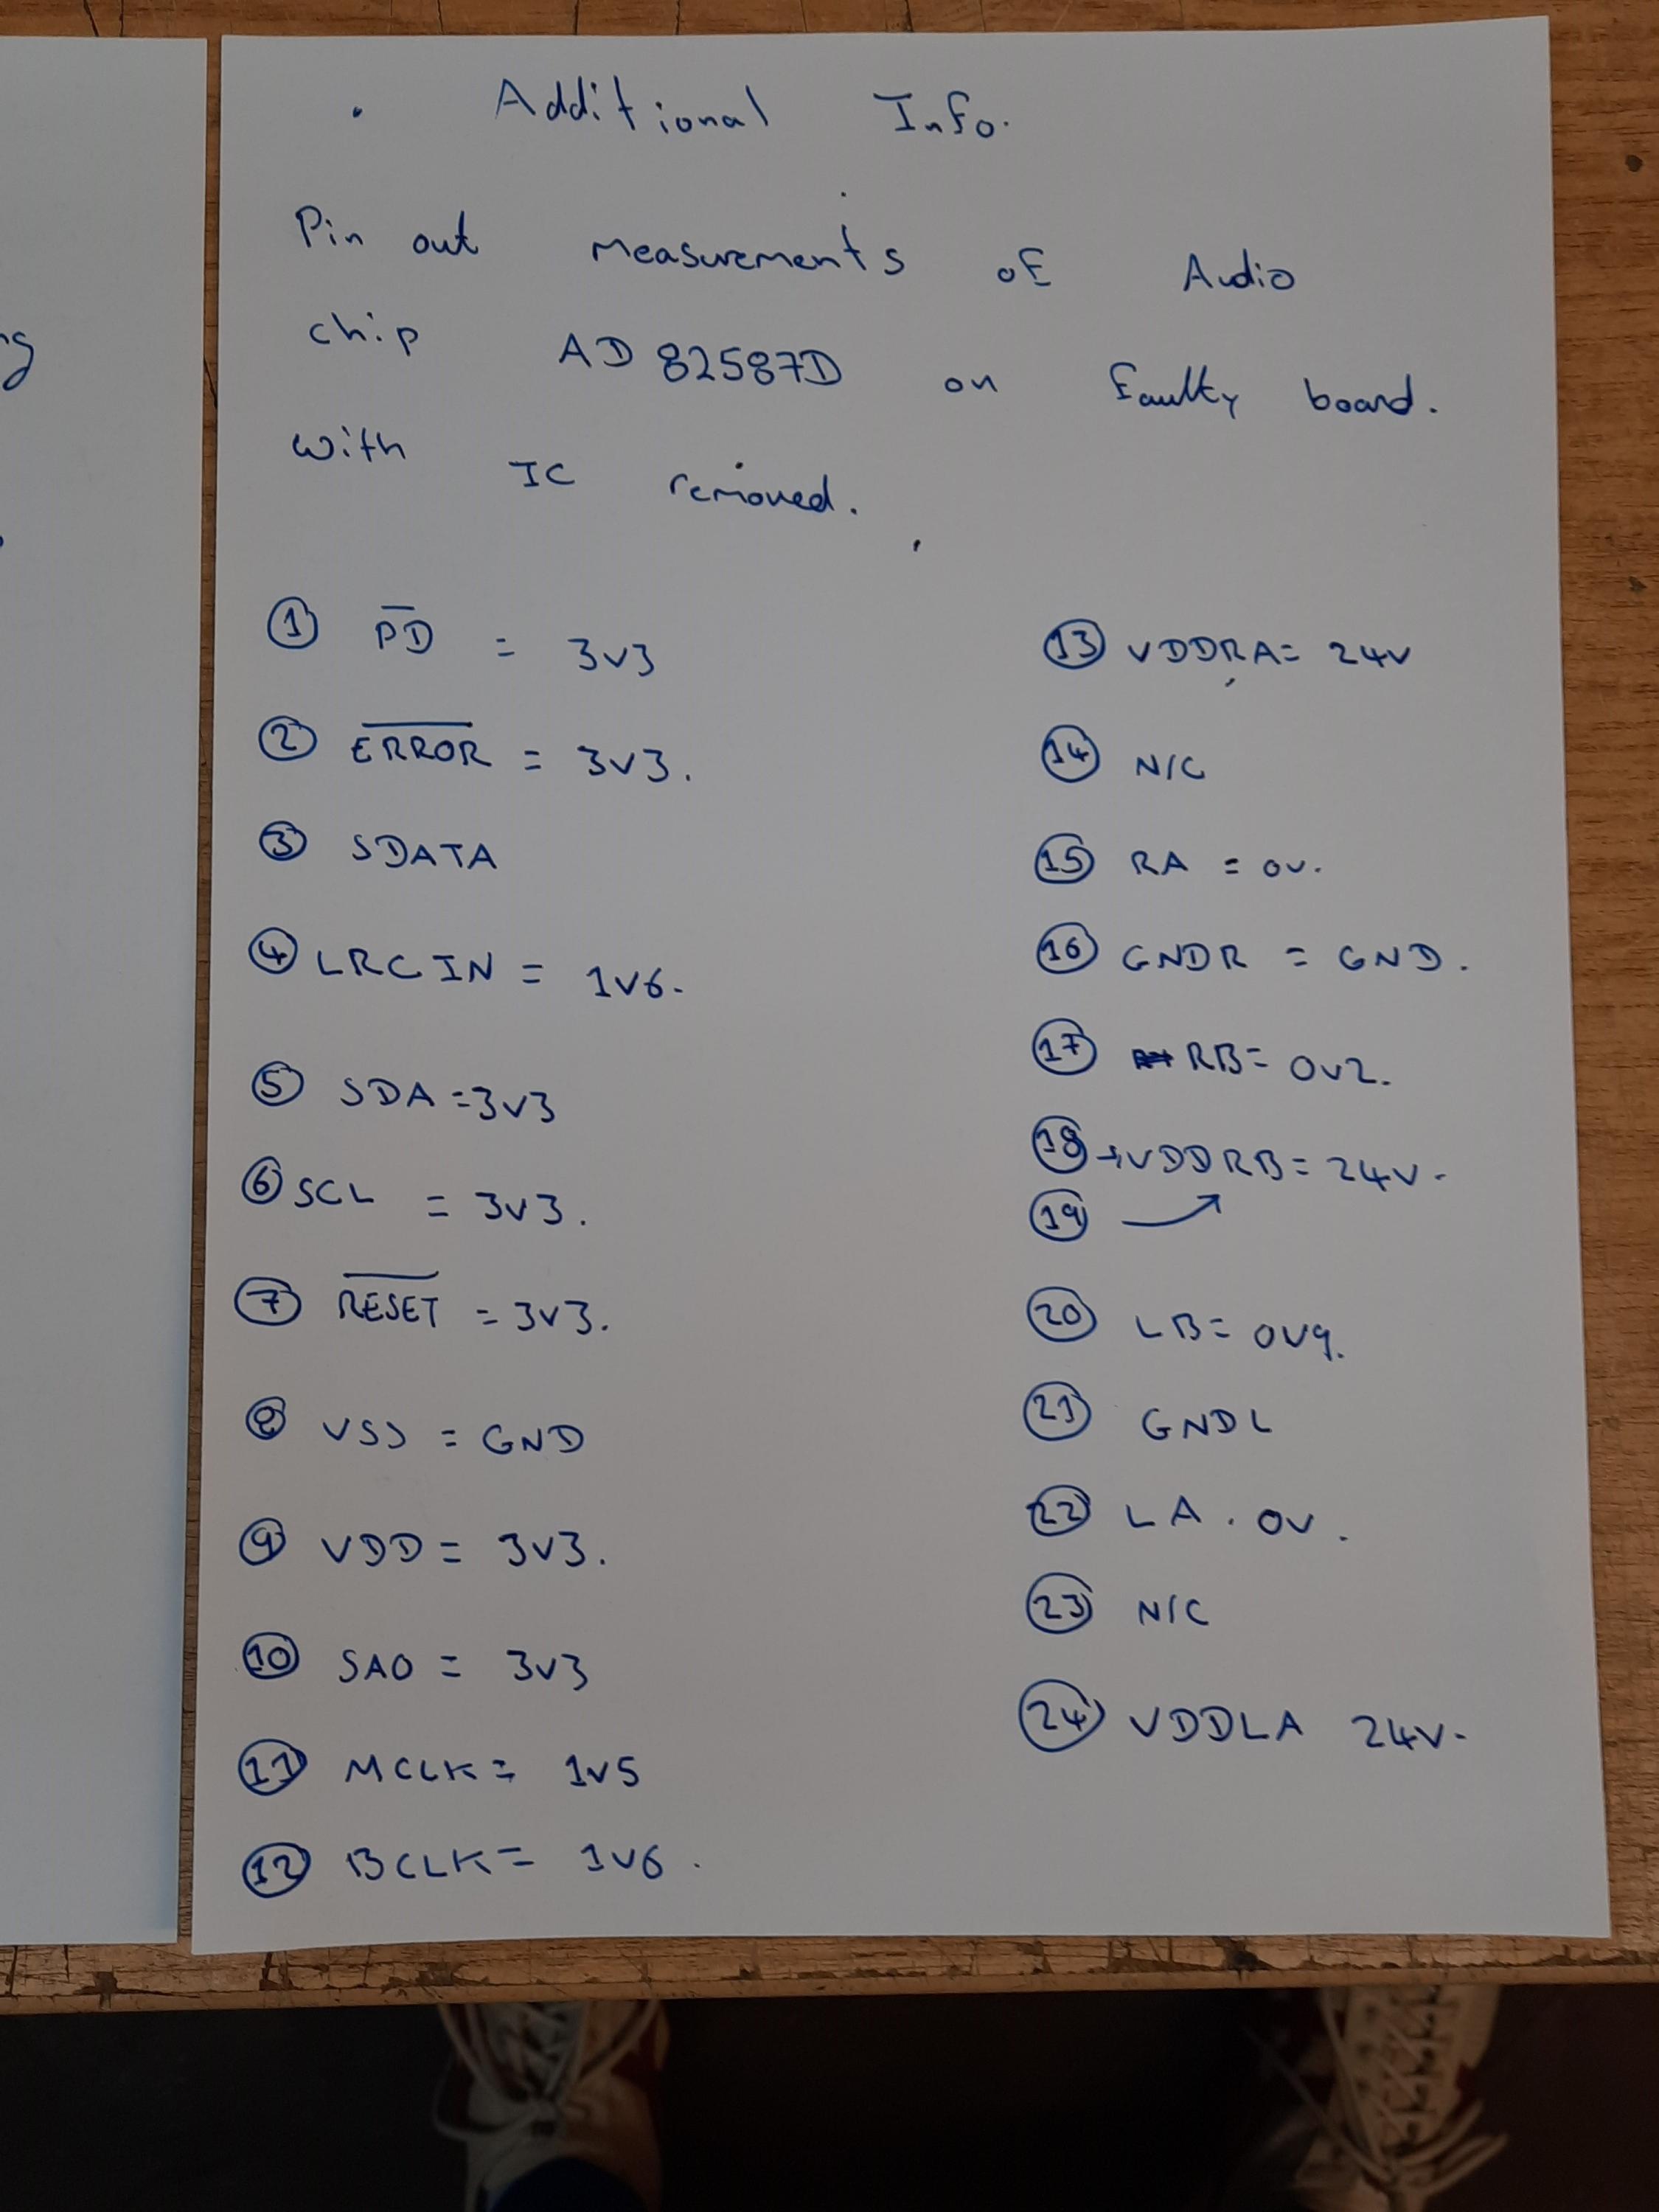 . Additional Info.
Pin out measurements of Audio
chip AD 82587D on faulty board.
with IC removed.
① PD = 3v3
② ERROR = 3v3.
③ SDATA
④ LRCIN = 1v6.
⑤ SDA = 3v3
⑥ SCL = 3v3.
⑦ RESET = 3v3.
⑧ VSS = GND
⑨ VDD = 3v3.
⑩ SA0 = 3v3
⑪ MCLK = 1v5
⑫ BCLK = 1v6.
⑬ VDDRA = 24v
⑭ N/C
⑮ RA = 0v.
⑯ GNDR = GND.
⑰ RB = 0v2.
⑱ → VDDRB = 24v.
⑲ →
⑳ LB = 0v9.
㉑ GNDL
㉒ LA. 0v.
㉓ N/C
㉔ VDDLA 24v.